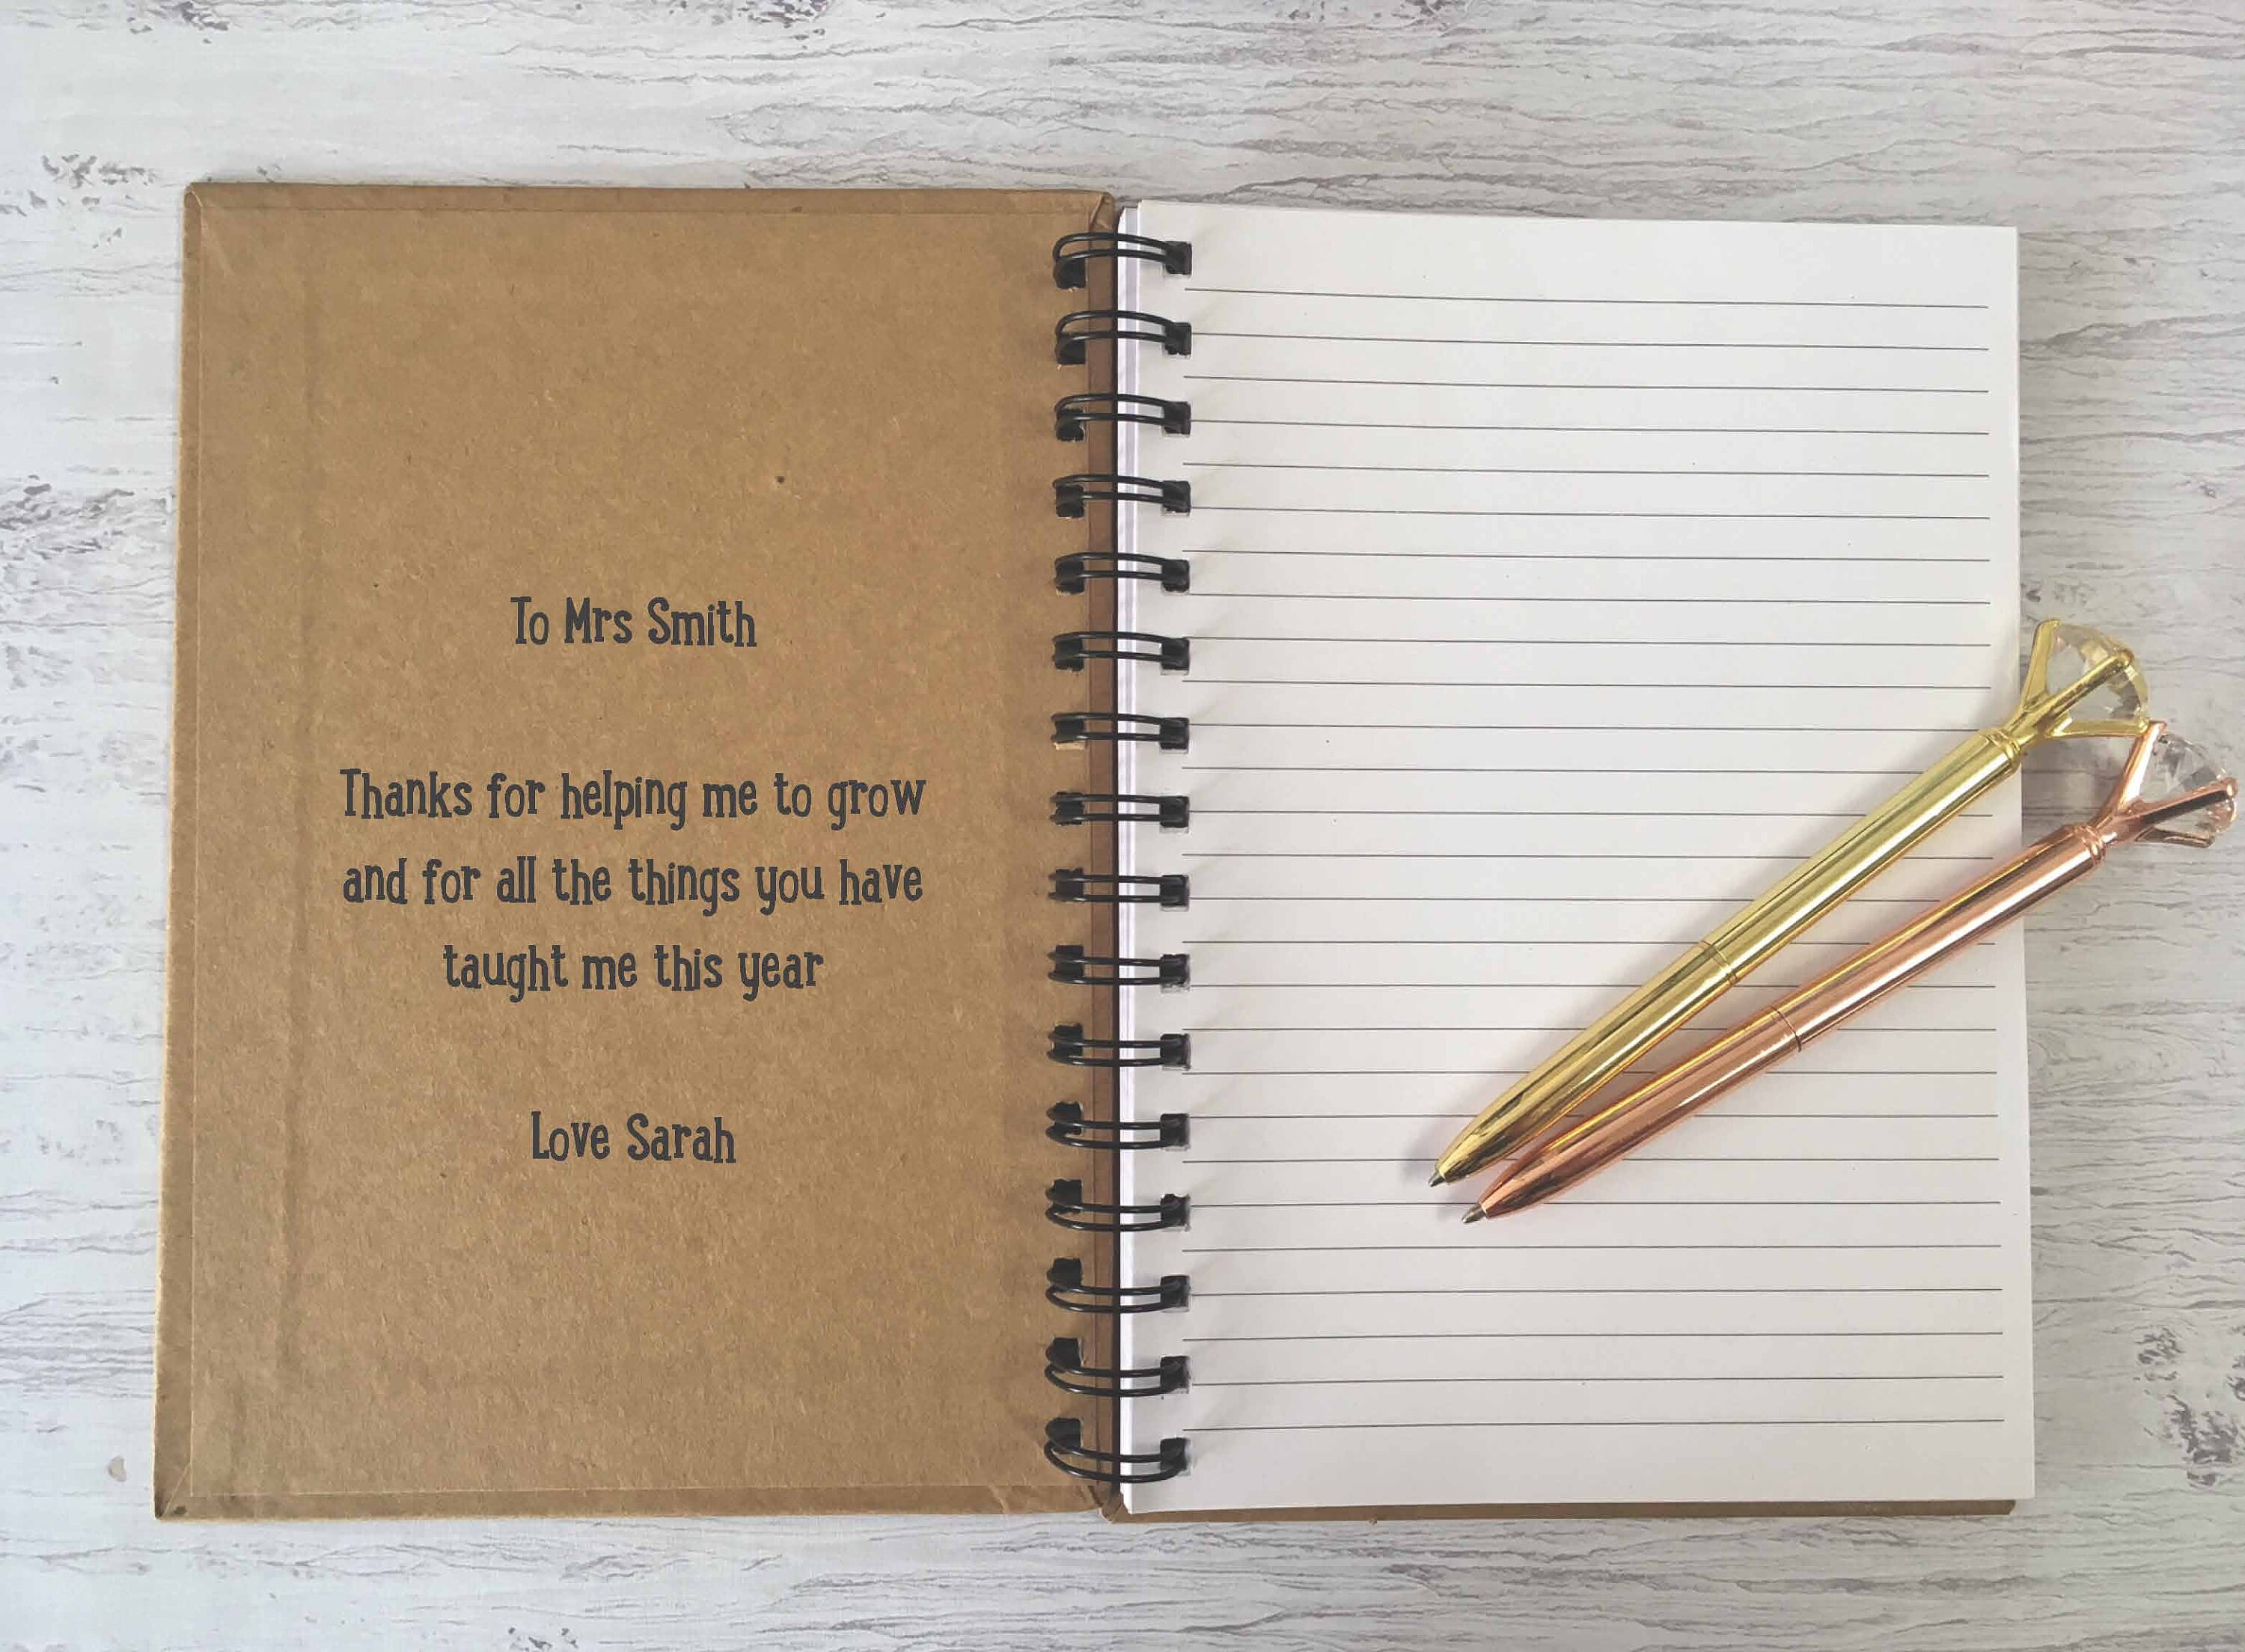 To Mrs Smith
Thanks for helping me to grow
and for all the things you have
taught me this year
Love Sarah